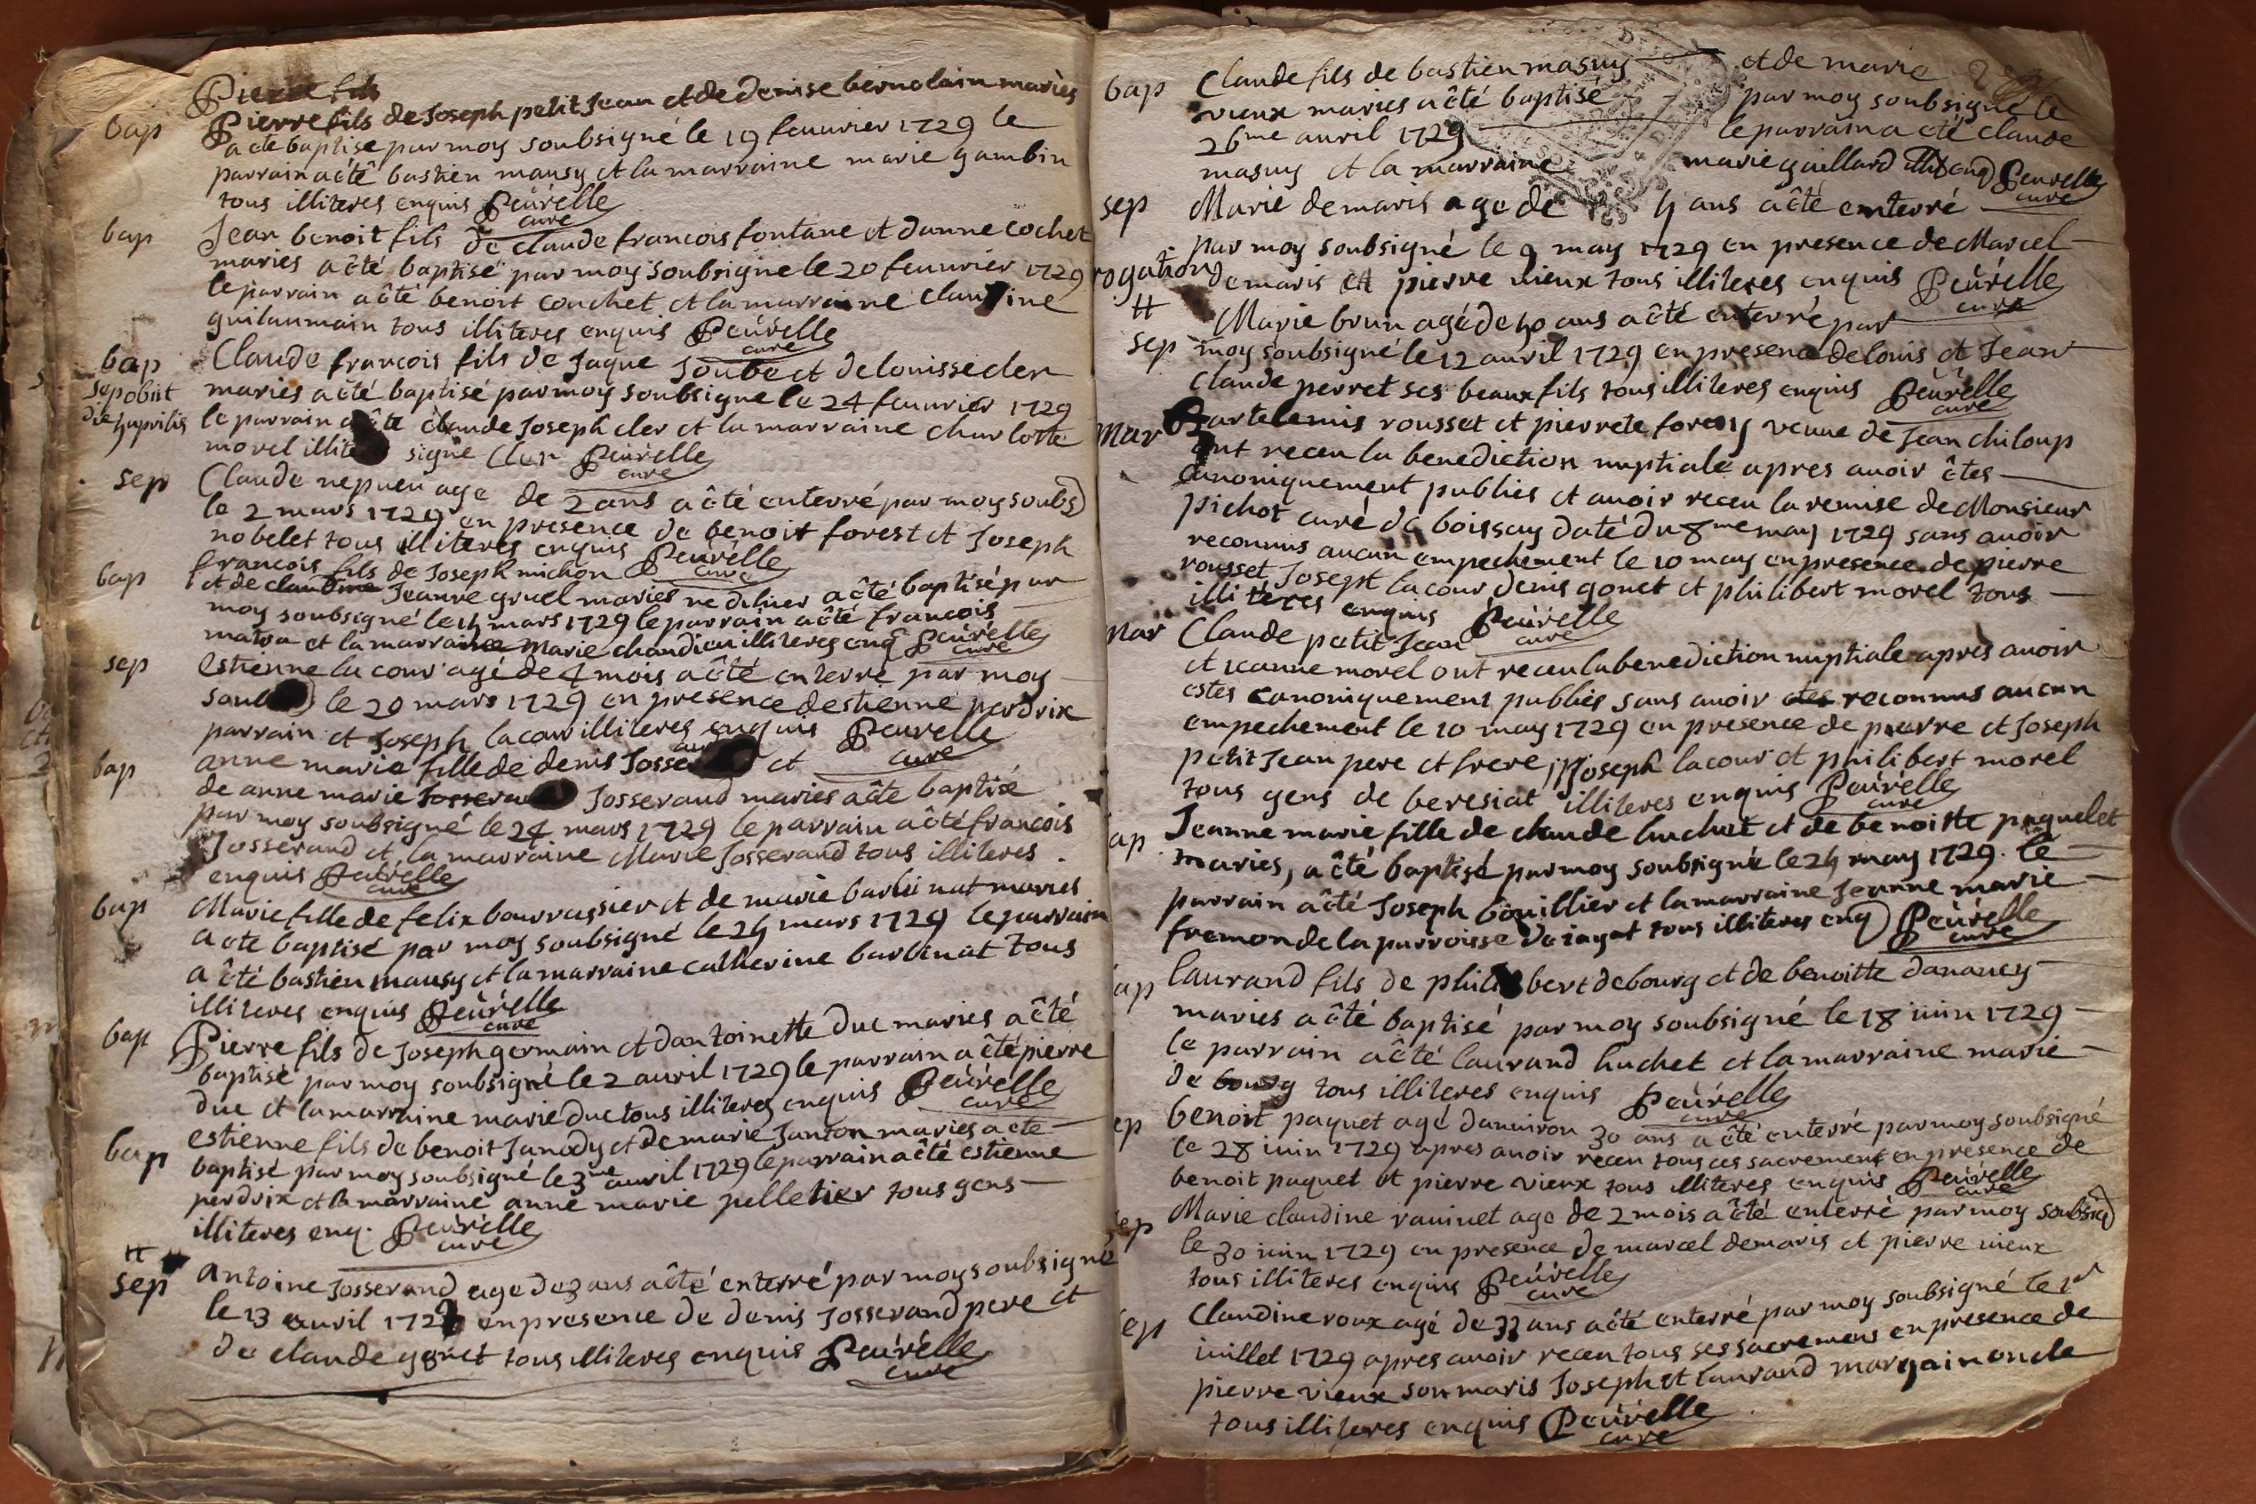 Pierre fils
bap Pierre fils de Joseph petit Jean et de denise bernolain mariés
a été baptisé par moy soubsigné le 19 feuurier 1729 le
parrain a été bastien mausy et la marraine marie gambin
tous illiteres enquis Peurelle
curé
bap Jean benoit fils de claude francois fontane et danne cochet
maries a été baptisé par moy soubsigné le 20 feuurier 1729
le parrain a été benoit couchet et la marraine claudine
guilaumain tous illiteres enquis Peurelle
curé
bap Claude francois fils de Jaque Joube et de louisse cler
sep obiit maries a été baptisé par moy soubsigné le 24 feuurier 1729
die 4 aprilis le parrain a été claude Joseph cler et la marraine charlotte
morel illiteres signé Cler Peurelle
curé
sep Claude nepueu age de 2 ans a été enterré par moy soubs
le 2 mars 1729 en presence de benoit forest et Joseph
nobelet tous illiteres enquis Peurelle
curé
bap francois fils de Joseph michon
et de claudine Jeanne gruel maries a été baptisé par
moy soubsigné le 14 mars 1729 le parrain a été francois
et la marraine Marie chandieu illiteres enq Peurelle
curé
sep estienne la cour agé de 4 mois a été enterré par moy
soub le 20 mars 1729 en presence destienne perdrix
parrain et Joseph lacour illiteres enquis Peurelle
curé
bap anne marie fille de denis Josserand et
de anne marie Josserand Josserand maries a été baptisé
par moy soubsigné le 24 mars 1729 le parrain a été francois
Josserand et la marraine Marie Josserand tous illiteres
enquis Peurelle
curé
bap Marie fille de felix bourrassier et de marie barbinat maries
a été baptisé par moy soubsigné le 24 mars 1729 le parrain
a été bastien mausy et la marraine catherine barbinat tous
illiteres enquis Peurelle
curé
bap Pierre fils de Joseph germain et dantoinette duc maries a été
baptisé par moy soubsigné le 2 auril 1729 le parrain a été pierre
duc et la marraine marie duc tous illiteres enquis Peurelle
curé
bap estienne fils de benoit Janody et de marie Janton maries a été
baptisé par moy soubsigné le 3me auril 1729 le parrain a été estienne
perdrix et la marraine anne marie pelletier tous gens
illiteres enq. Peurelle
curé
sep antoine Josserand age de 3 ans a été enterré par moy soubsigné
le 13 auril 1729 en presence de denis Josserand pere et
de claude gonet tous illiteres enquis Peurelle
curé
bap Claude fils de bastien masuy et de marie
vieux maries a été baptisé par moy soubsigné le
26me auril 1729 le parrain a été claude
masuy et la marraine marie gaillard Peurelle
curé
sep Marie demaris age de 4 ans a été enterré
par moy soubsigné le 9 may 1729 en presence de Marcel
rogation demaris et pierre vieux tous illiteres enquis Peurelle
curé
sep Marie brun agé de 40 ans a été enterré par
moy soubsigné le 12 auril 1729 en presence de louis et Jean
Claude perret ses beaux fils tous illiteres enquis Peurelle
curé
Mar Bartelemis rousset et pierrete forest veuue de Jean chiloup
ont receu la benediction nuptiale apres auoir êtes
canoniquement publies et auoir receu la remise de Monsieur
pichot curé de boissay daté du 8me may 1729 sans auoir
reconnus aucun empechement le 10 may en presence de pierre
rousset Joseph lacour denis gonet et philibert morel tous
illiteres enquis Peurelle
curé
Mar Claude petit Jean
et Jeanne morel ont receu la benediction nuptiale apres auoir
estes canoniquement publiés sans auoir etes reconnus aucun
empechement le 10 may 1729 en presence de pierre et Joseph
petit Jean pere et frere Joseph lacour et philibert morel
tous gens de beresiat illiteres enquis Peurelle
curé
ap Jeanne marie fille de claude huchet et de benoitte paquelet
maries, a été baptisé par moy soubsigné le 24 may 1729. le
parrain a été Joseph bouillier et la marraine Jeanne marie
fremon de la parroisse de iayat tous illiteres enq Peurelle
curé
ap laurand fils de philibert debourg et de benoitte dananey
maries a été baptisé par moy soubsigné le 18 iuin 1729
le parrain a été laurand huchet et la marraine marie
de bourg tous illiteres enquis Peurelle
curé
ep benoit paquet agé danuiron 30 ans a été enterré par moy soubsigné
le 28 iuin 1729 apres auoir receu tous ces sacrement en presence de
benoit paquet et pierre vieux tous illiteres enquis Peurelle
curé
sep Marie claudine rauinet age de 2 mois a été enterré par moy soubsig
le 30 iuin 1729 en presence de marcel demaris et pierre vieux
tous illiteres enquis Peurelle
curé
ep Claudine roux agé de 37 ans a été enterré par moy soubsigné le 1er
iuillet 1729 apres auoir receu tous ses sacremens en presence de
pierre vieux son maris Joseph et laurand margain oncle
tous illiteres enquis Peurelle
curé